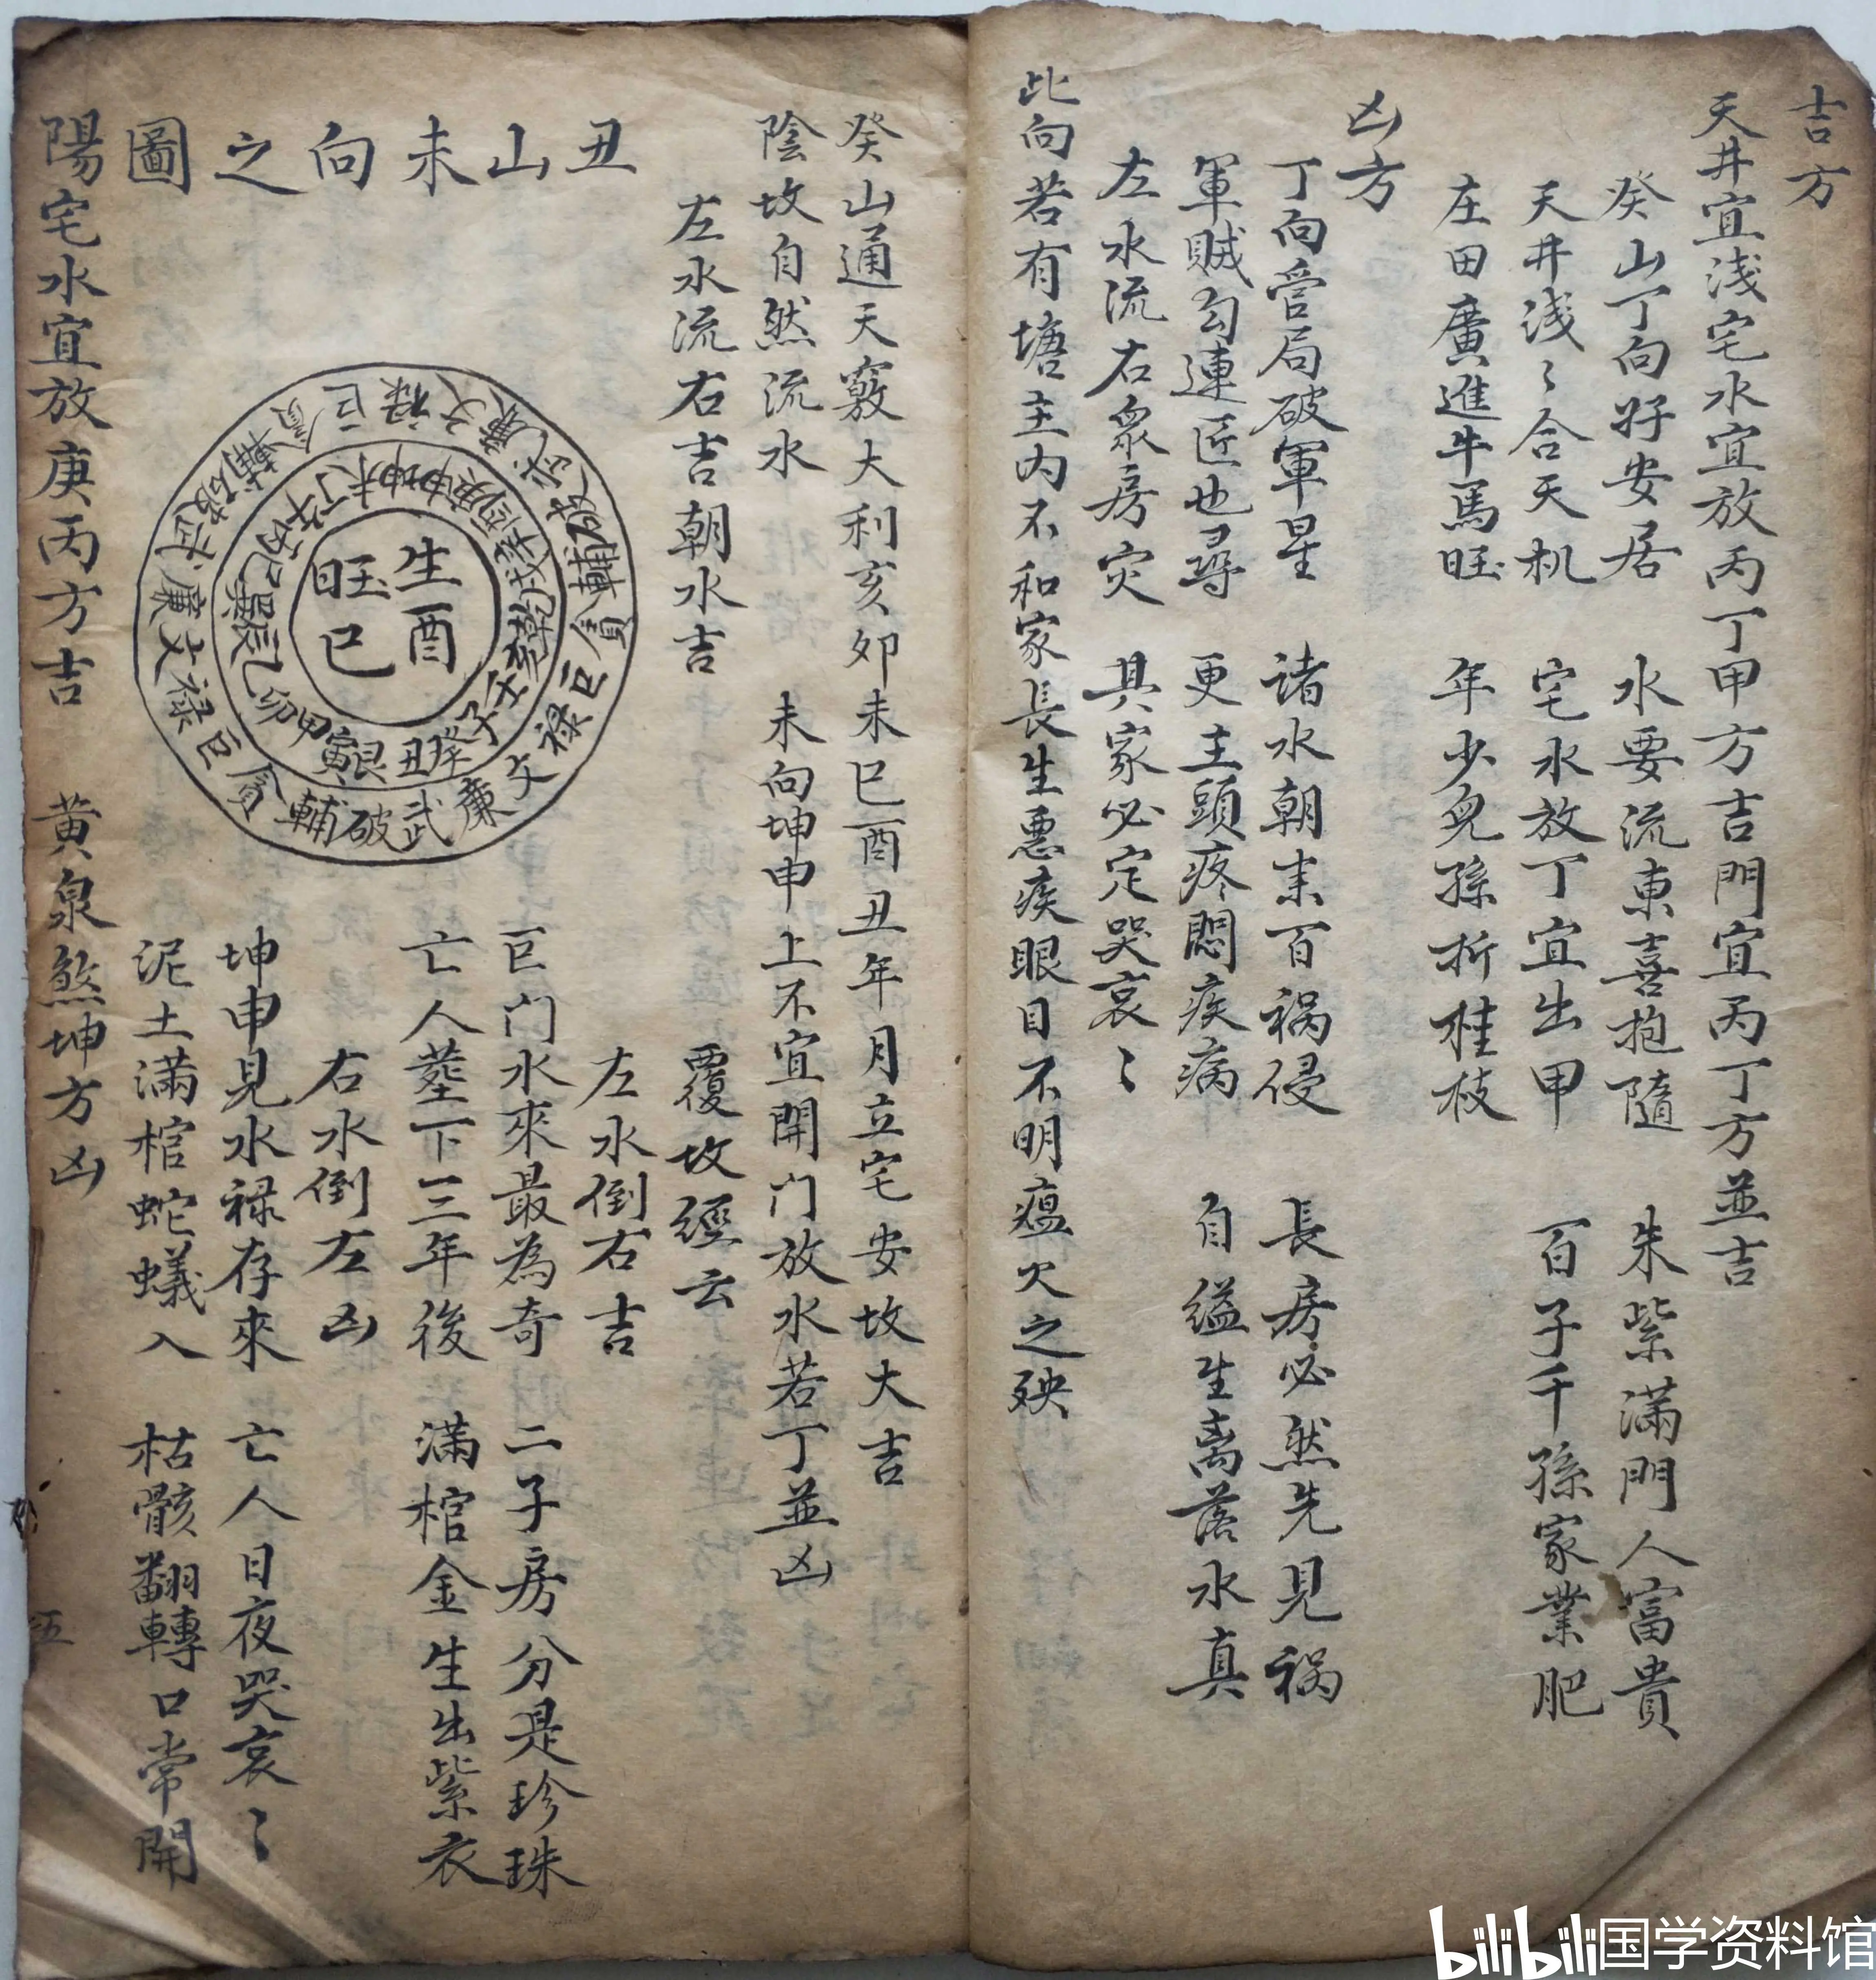 吉方
天井宜浅宅水宜放丙丁甲方吉門宜丙丁方並吉
癸山丁向好安居 水要流東喜抱隨 朱紫滿門人富貴
天井浅〻合天机 宅水放丁宜出甲 百子千孫家業肥
庄田廣進牛馬旺 年少兒孫折桂枝
凶方
丁向官局破軍星 诸水朝来百祸侵 長房必然先見祸
軍贼勾連匠也尋 更主頭疼悶疾病 自缢生离落水真
左水流右衆房灾 具家必定哭哀〻
此向若有塘主内不和家長生悪疾眼目不明瘟火之殃
癸山通天竅大利亥卯未巳酉丑年月立宅安坟大吉
陰坟自然流水 未向坤申上不宜開门放水若丁並凶
左水流右吉朝水吉 覆坟經云
丑山未向之圖
左水倒右吉
巨门水來最為奇 二子房分是珍珠
亡人塟下三年後 滿棺金生出紫衣
右水倒左凶
坤申見水禄存來 亡人日夜哭哀〻
泥土滿棺蛇蟻入 枯骸翻轉口常開
生酉
旺巳
未坤申庚酉辛戌乾亥壬子癸丑艮寅甲卯乙辰巽巳丙午丁
禄文廉武破輔貪巨禄文廉武破輔貪巨禄文廉武破輔貪巨
陽宅水宜放庚丙方吉 黄泉煞坤方凶
五
bilibili国学资料馆